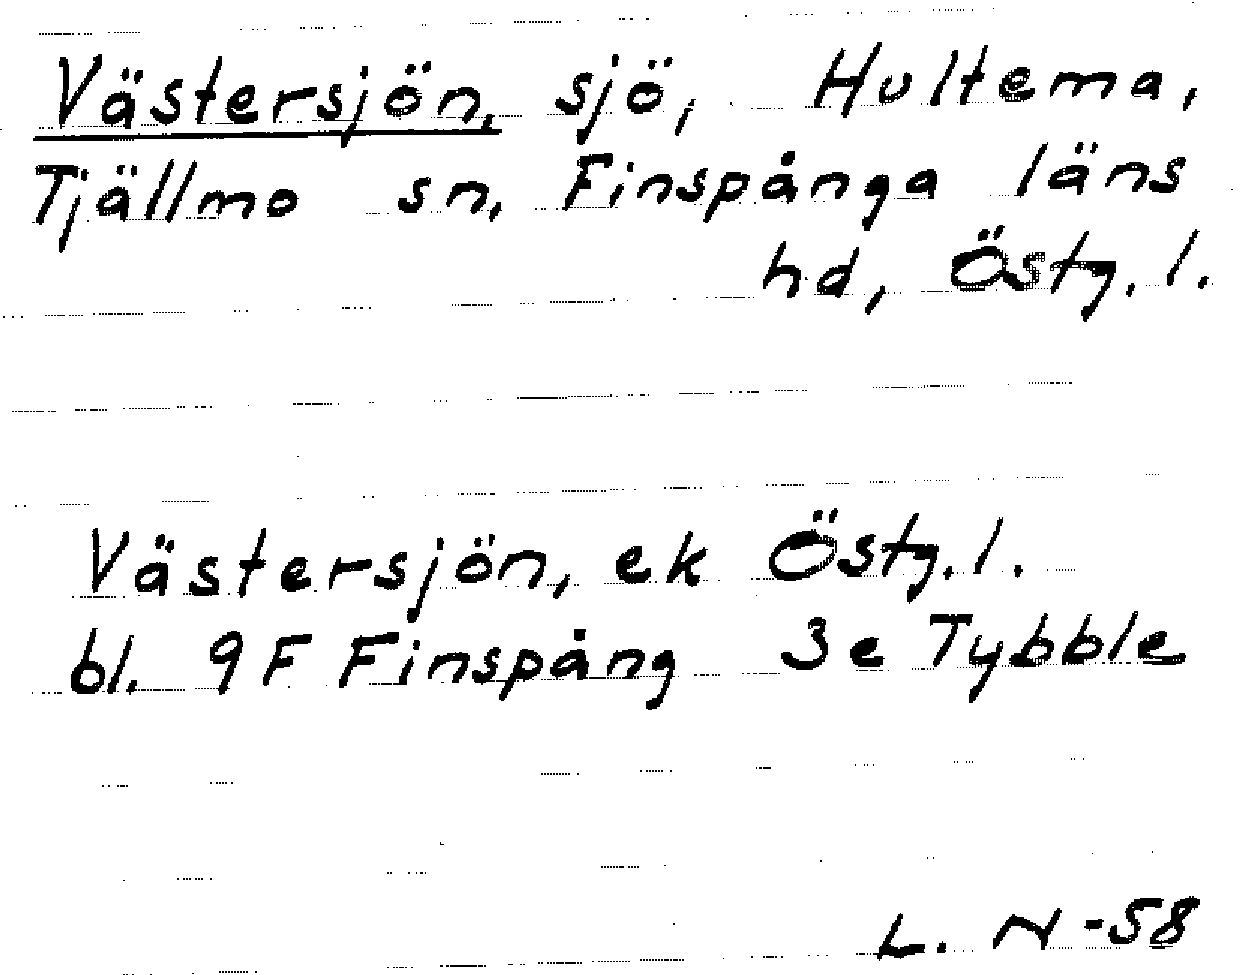 Västersjön, sjö, Hultema,
Tjällmo sn, Finspånga läns
hd, Östg. l.
Västersjön, ek Östg. l.
bl. 9F Finspång 3e Tybble
L. N -58